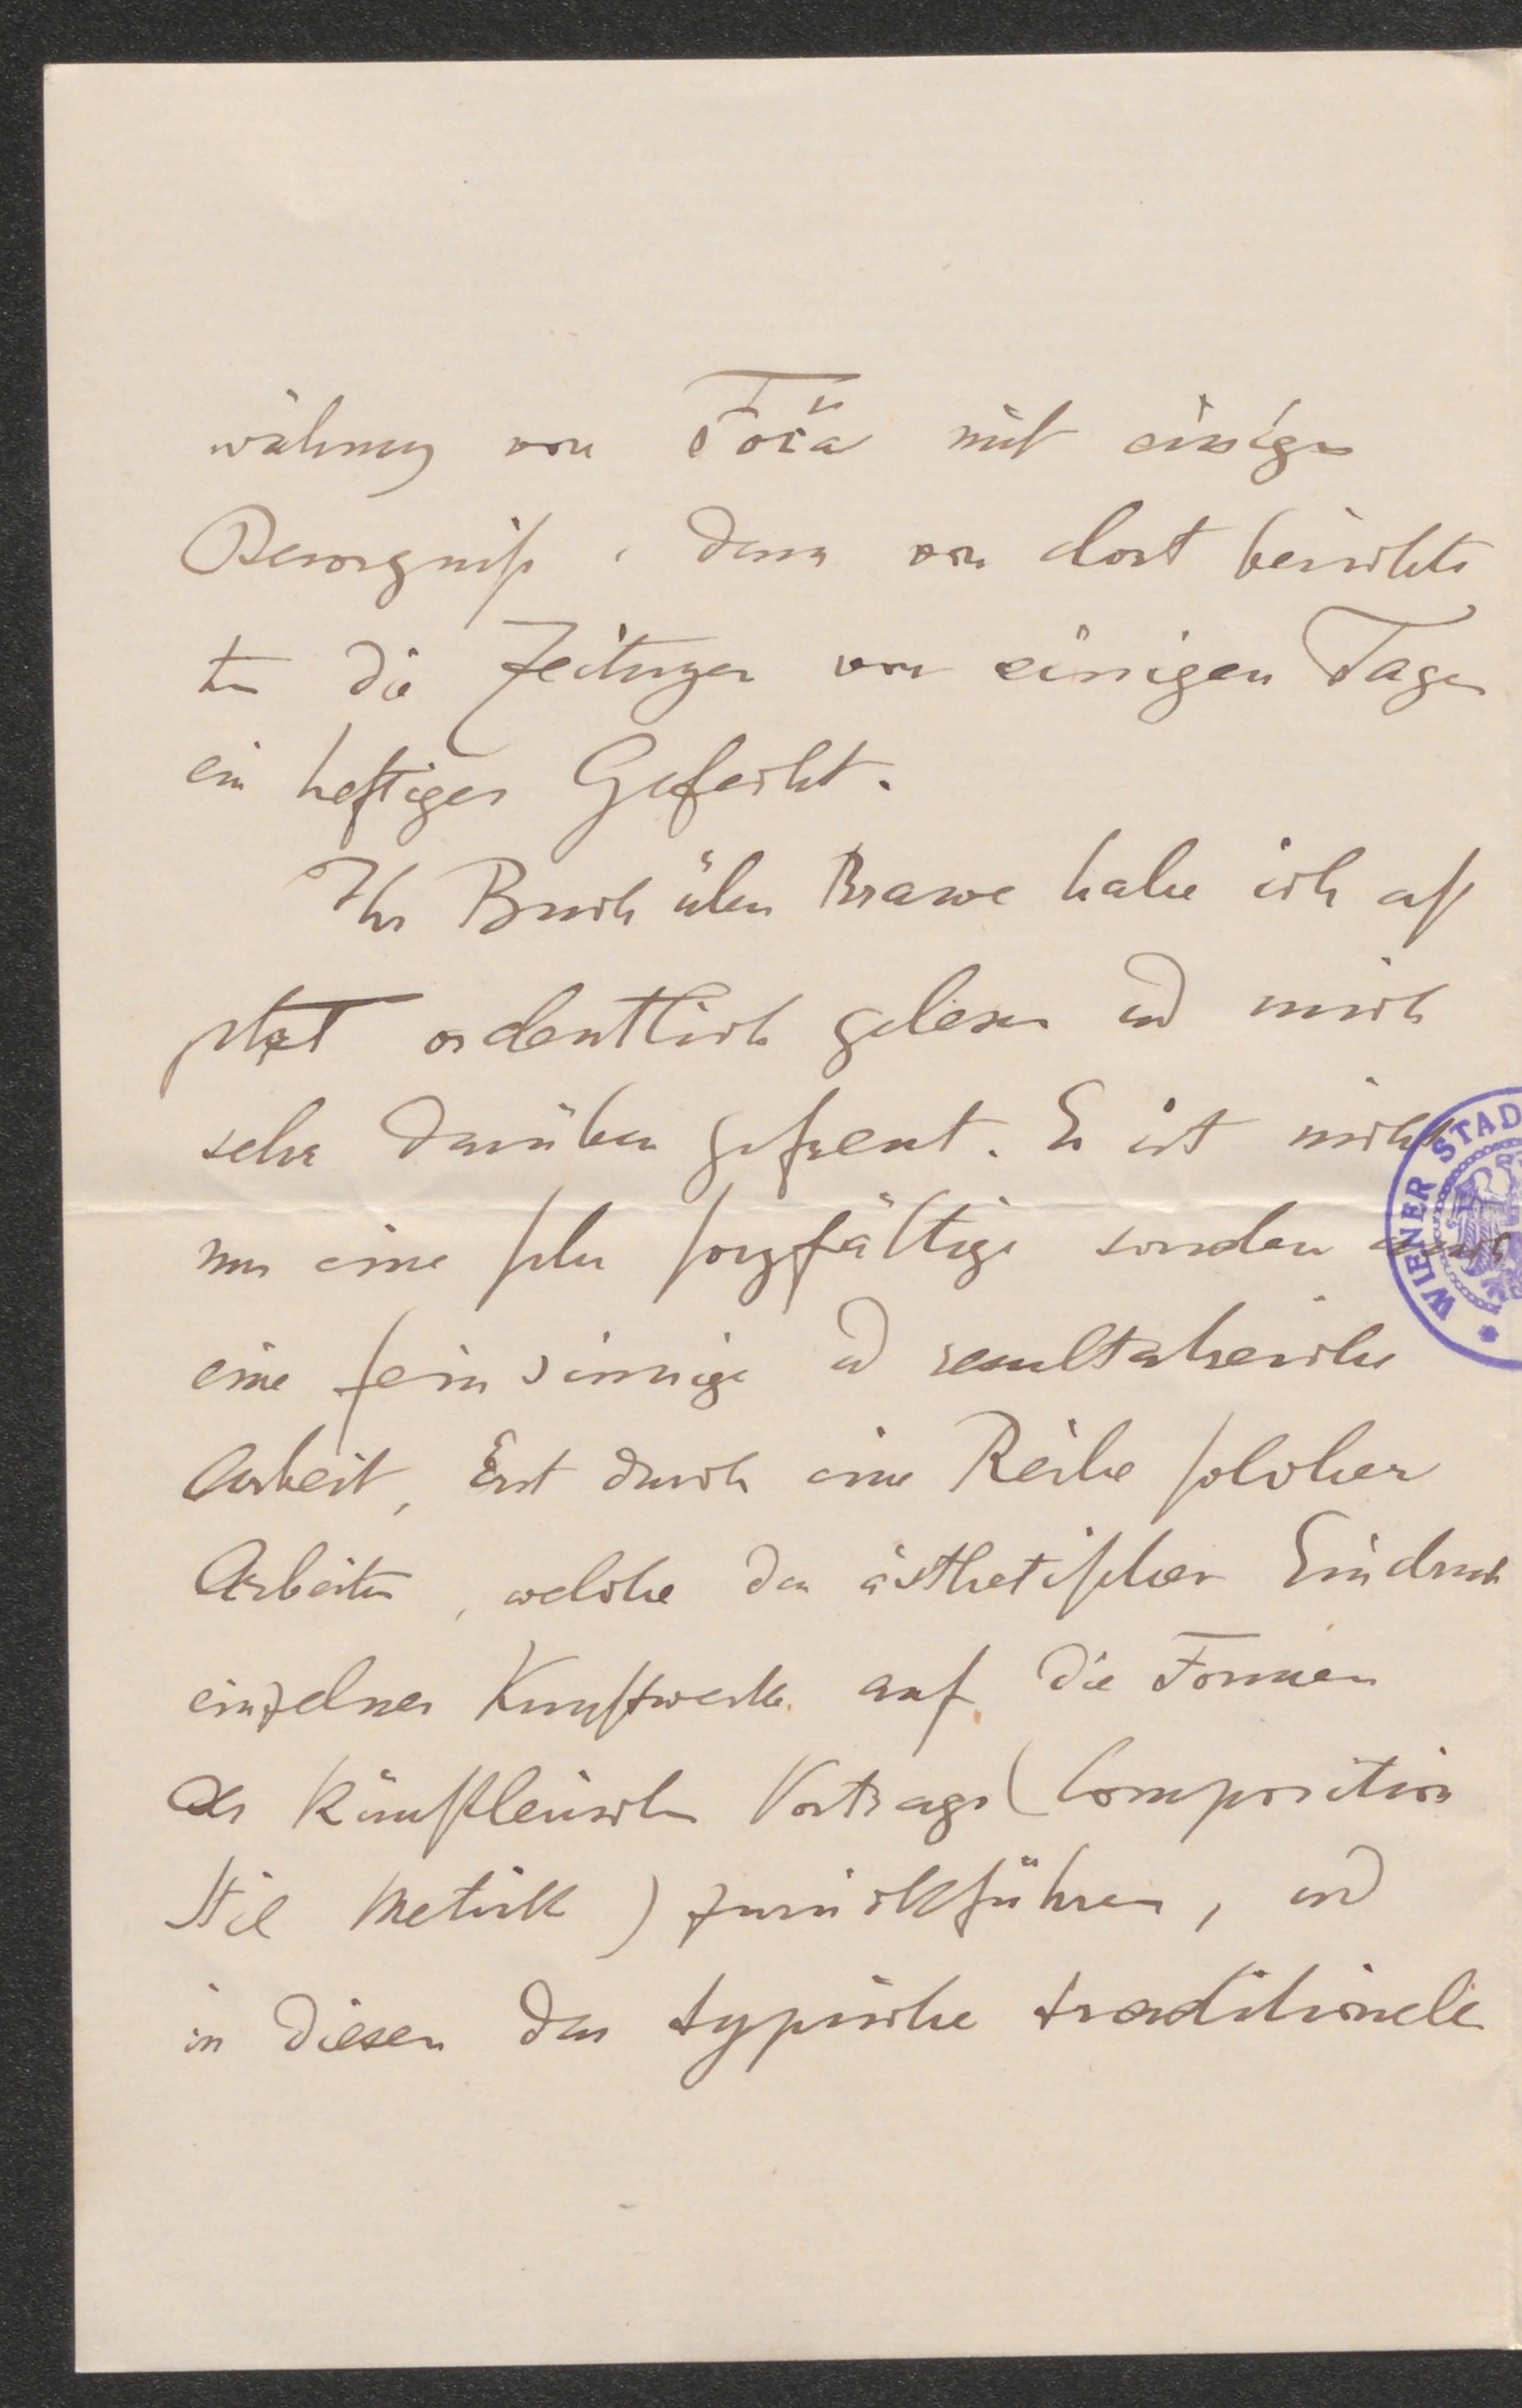 wähnung von Foča mit einiger
Besorgniß, denn von dort berichte
ten die Zeitungen vor einigen Tagen
ein heftiges Gefecht.
Ihr Buch über Brawe habe ich erst
jetzt ordentlich gelesen und mich
sehr darüber gefreut. Es ist nicht
nur eine sehr sorgfältige sondern auch
eine feinsinnige und resultatreiche
Arbeit, Erst durch eine Reihe solcher
Arbeiten, welche den ästhetischen Eindruck
einzelner Kunstwerke auf die Formen
des künstlerischen Vortrags (Composition
Stil Metrik) zurückführen, und
in diesen das typische traditionelle
WIENER STAD